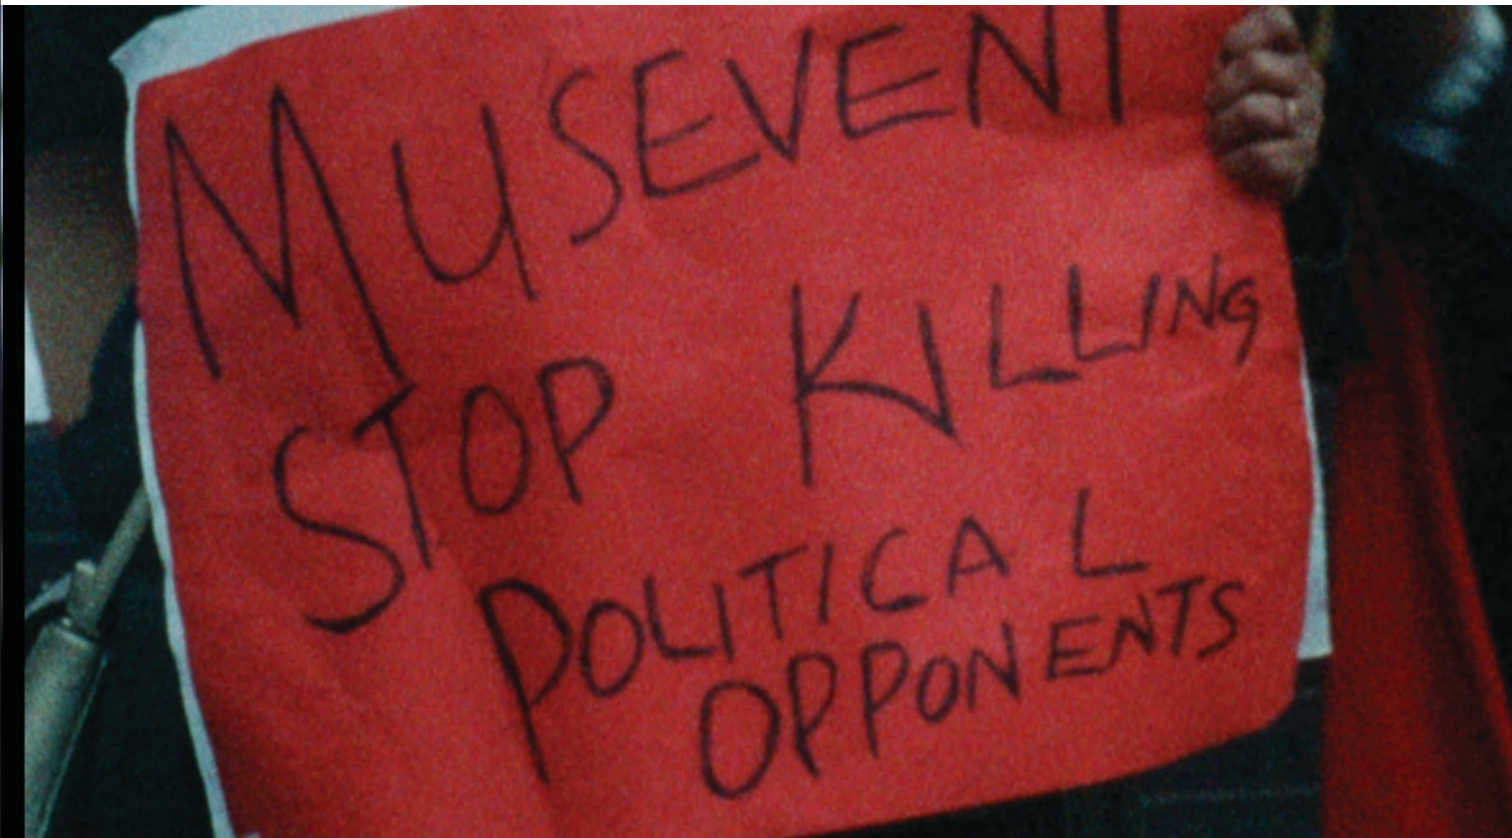 MUSEVENI
STOP KILLING
POLITICAL
OPPONENTS